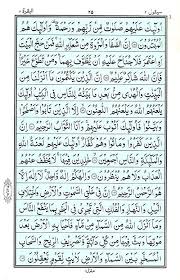 سيقول ٢ ٢٥ البقرة ٢
اُولٰٓئِكَ عَلَيْهِمْ صَلَوٰتٌ مِّنْ رَّبِّهِمْ وَرَحْمَةٌ وَاُولٰٓئِكَ هُمُ
الْمُهْتَدُوْنَ ۝ اِنَّ الصَّفَا وَالْمَرْوَةَ مِنْ شَعَآئِرِ اللّٰهِ فَمَنْ حَجَّ الْبَيْتَ
اَوِ اعْتَمَرَ فَلَا جُنَاحَ عَلَيْهِ اَنْ يَّطَّوَّفَ بِهِمَا وَمَنْ تَطَوَّعَ خَيْرًا
فَاِنَّ اللّٰهَ شَاكِرٌ عَلِيْمٌ ۝ اِنَّ الَّذِيْنَ يَكْتُمُوْنَ مَآ اَنْزَلْنَا مِنَ
الْبَيِّنٰتِ وَالْهُدٰى مِنْۢ بَعْدِ مَا بَيَّنّٰهُ لِلنَّاسِ فِى الْكِتٰبِ اُولٰٓئِكَ
يَلْعَنُهُمُ اللّٰهُ وَيَلْعَنُهُمُ اللّٰعِنُوْنَ ۝ اِلَّا الَّذِيْنَ تَابُوْا وَاَصْلَحُوْا
وَبَيَّنُوْا فَاُولٰٓئِكَ اَتُوْبُ عَلَيْهِمْ وَاَنَا التَّوَّابُ الرَّحِيْمُ ۝ اِنَّ
الَّذِيْنَ كَفَرُوْا وَمَاتُوْا وَهُمْ كُفَّارٌ اُولٰٓئِكَ عَلَيْهِمْ لَعْنَةُ اللّٰهِ
وَالْمَلٰٓئِكَةِ وَالنَّاسِ اَجْمَعِيْنَ ۝ خٰلِدِيْنَ فِيْهَا لَا يُخَفَّفُ عَنْهُمُ
الْعَذَابُ وَلَا هُمْ يُنْظَرُوْنَ ۝ وَاِلٰهُكُمْ اِلٰهٌ وَّاحِدٌ لَآ اِلٰهَ اِلَّا
هُوَ الرَّحْمٰنُ الرَّحِيْمُ ۝ اِنَّ فِيْ خَلْقِ السَّمٰوٰتِ وَالْاَرْضِ وَاخْتِلَافِ
الَّيْلِ وَالنَّهَارِ وَالْفُلْكِ الَّتِيْ تَجْرِيْ فِى الْبَحْرِ بِمَا يَنْفَعُ النَّاسَ
وَمَآ اَنْزَلَ اللّٰهُ مِنَ السَّمَآءِ مِنْ مَّآءٍ فَاَحْيَا بِهِ الْاَرْضَ بَعْدَ
مَوْتِهَا وَبَثَّ فِيْهَا مِنْ كُلِّ دَآبَّةٍ وَّتَصْرِيْفِ الرِّيٰحِ وَالسَّحَابِ
الْمُسَخَّرِ بَيْنَ السَّمَآءِ وَالْاَرْضِ لَاٰيٰتٍ لِّقَوْمٍ يَّعْقِلُوْنَ ۝